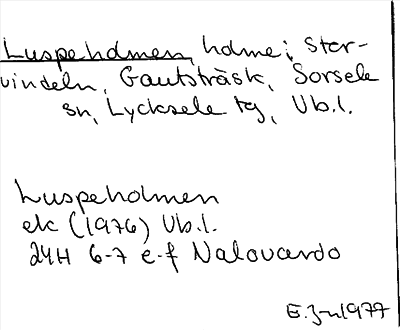 Luspeholmen, holme i Stor-
vindeln, Gautsträsk, Sorsele
sn, Lycksele tg, Vb.l.
Luspeholmen
ek (1976) Vb.l.
24H 6-7 e-f Nalovardo
1977